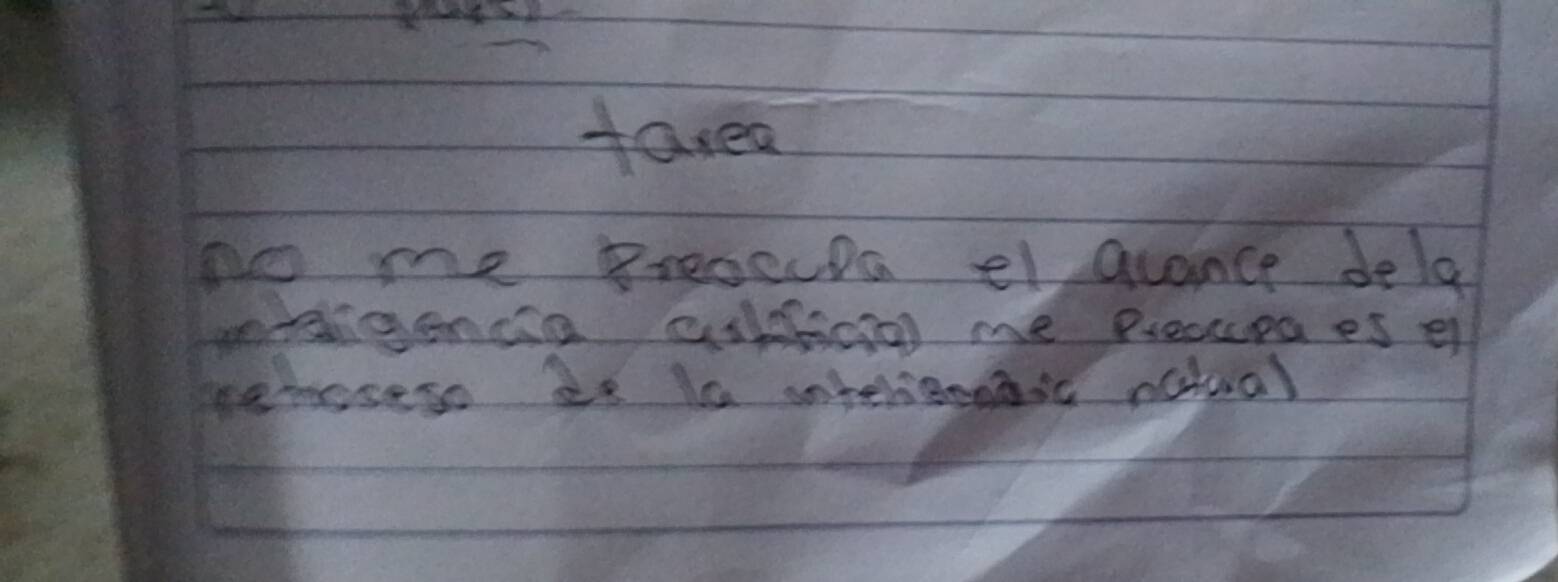 tarea
no me Preocupa el avance dela
inteligencia artificial me Preocupa es el
retroseso de la natural